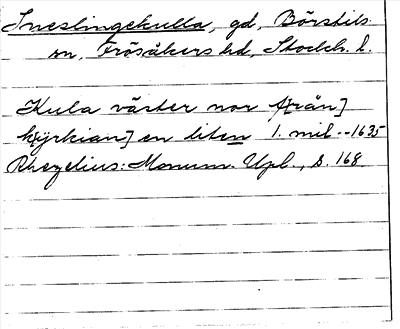 Sneslingekulla, gd, Börstils
sn, Frösåkers hd, Stockh. l.
Kula väster nor f[rån]
k[yrkian] en liten 1. mil -- 1635
Rhezelius: Monum. Upl., s. 168.